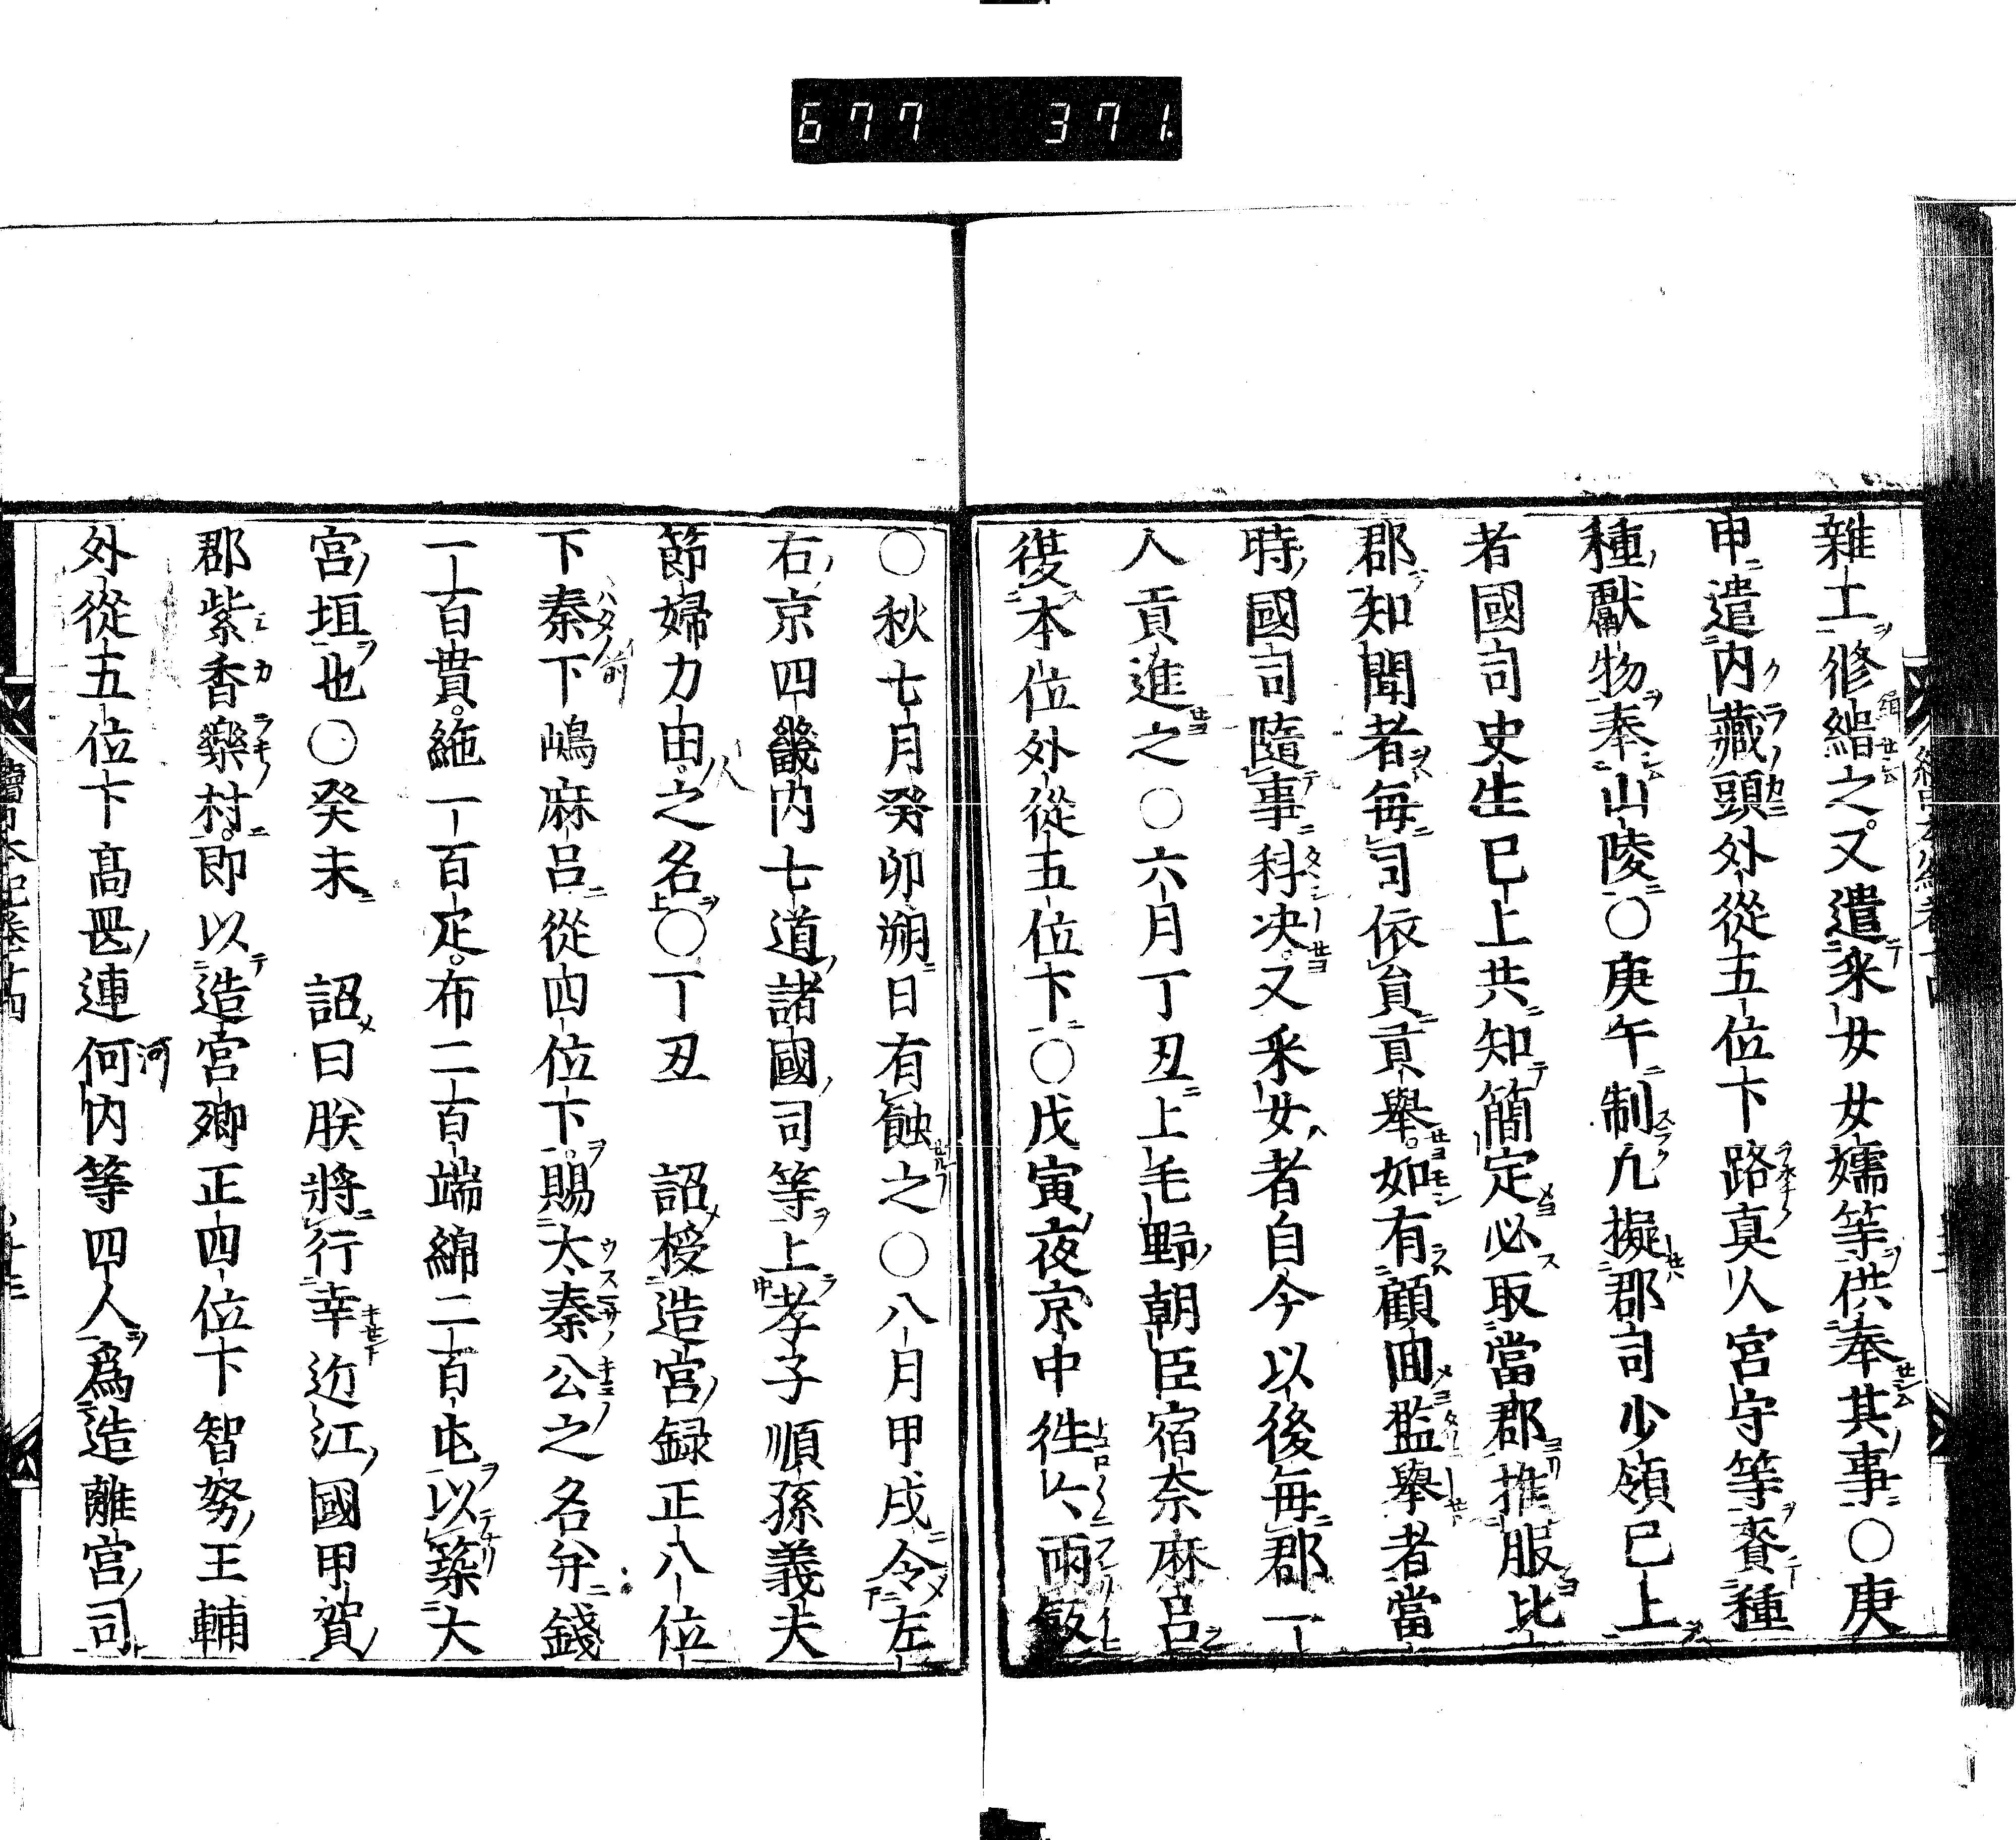 677 371
雜工修緝之又遣采女女孺等供奉其事〇庚
申遣内藏頭外從五位下路真人宮守等賫種
種獻物奉山陵〇庚午制凡擬郡司少領已上
者國司史生已上共知簡定必取當郡推服比
郡知聞者毎司依員貢舉如有顧面濫舉者當
時國司隨事科决又采女者自今以後毎郡一
人貢進之〇六月丁丑上毛野朝臣宿奈麻呂
復本位外從五位下〇戊寅夜京中徃々雨飯
〇秋七月癸卯朔日有蝕之〇八月甲戌令左
右京四畿内七道諸國司等上孝子順孫義夫
節婦力田之名〇丁丑 詔授造宮録正八位
下秦下嶋麻呂從四位下賜太秦公之名并錢
一百貫絁一百疋布二百端綿二百屯以築大
宮垣也〇癸未 詔曰朕將行幸近江國甲賀
郡紫香樂村即以造宮卿正四位下智努王輔
外從五位下髙畏連何内等四人爲造離宮司